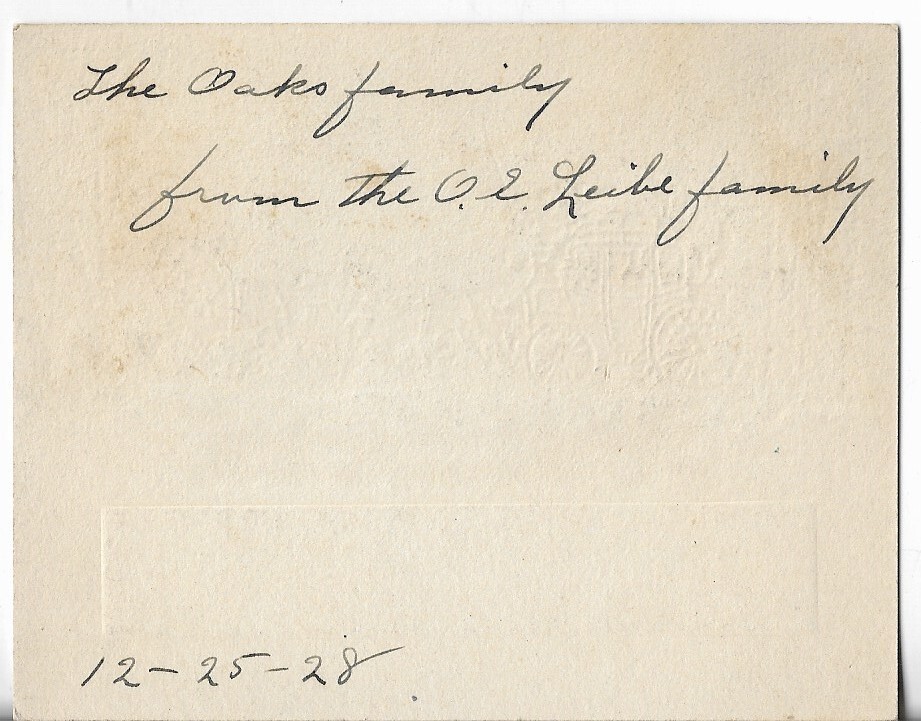 The Oaks family
from the O.E. Leibe family
12-25-28